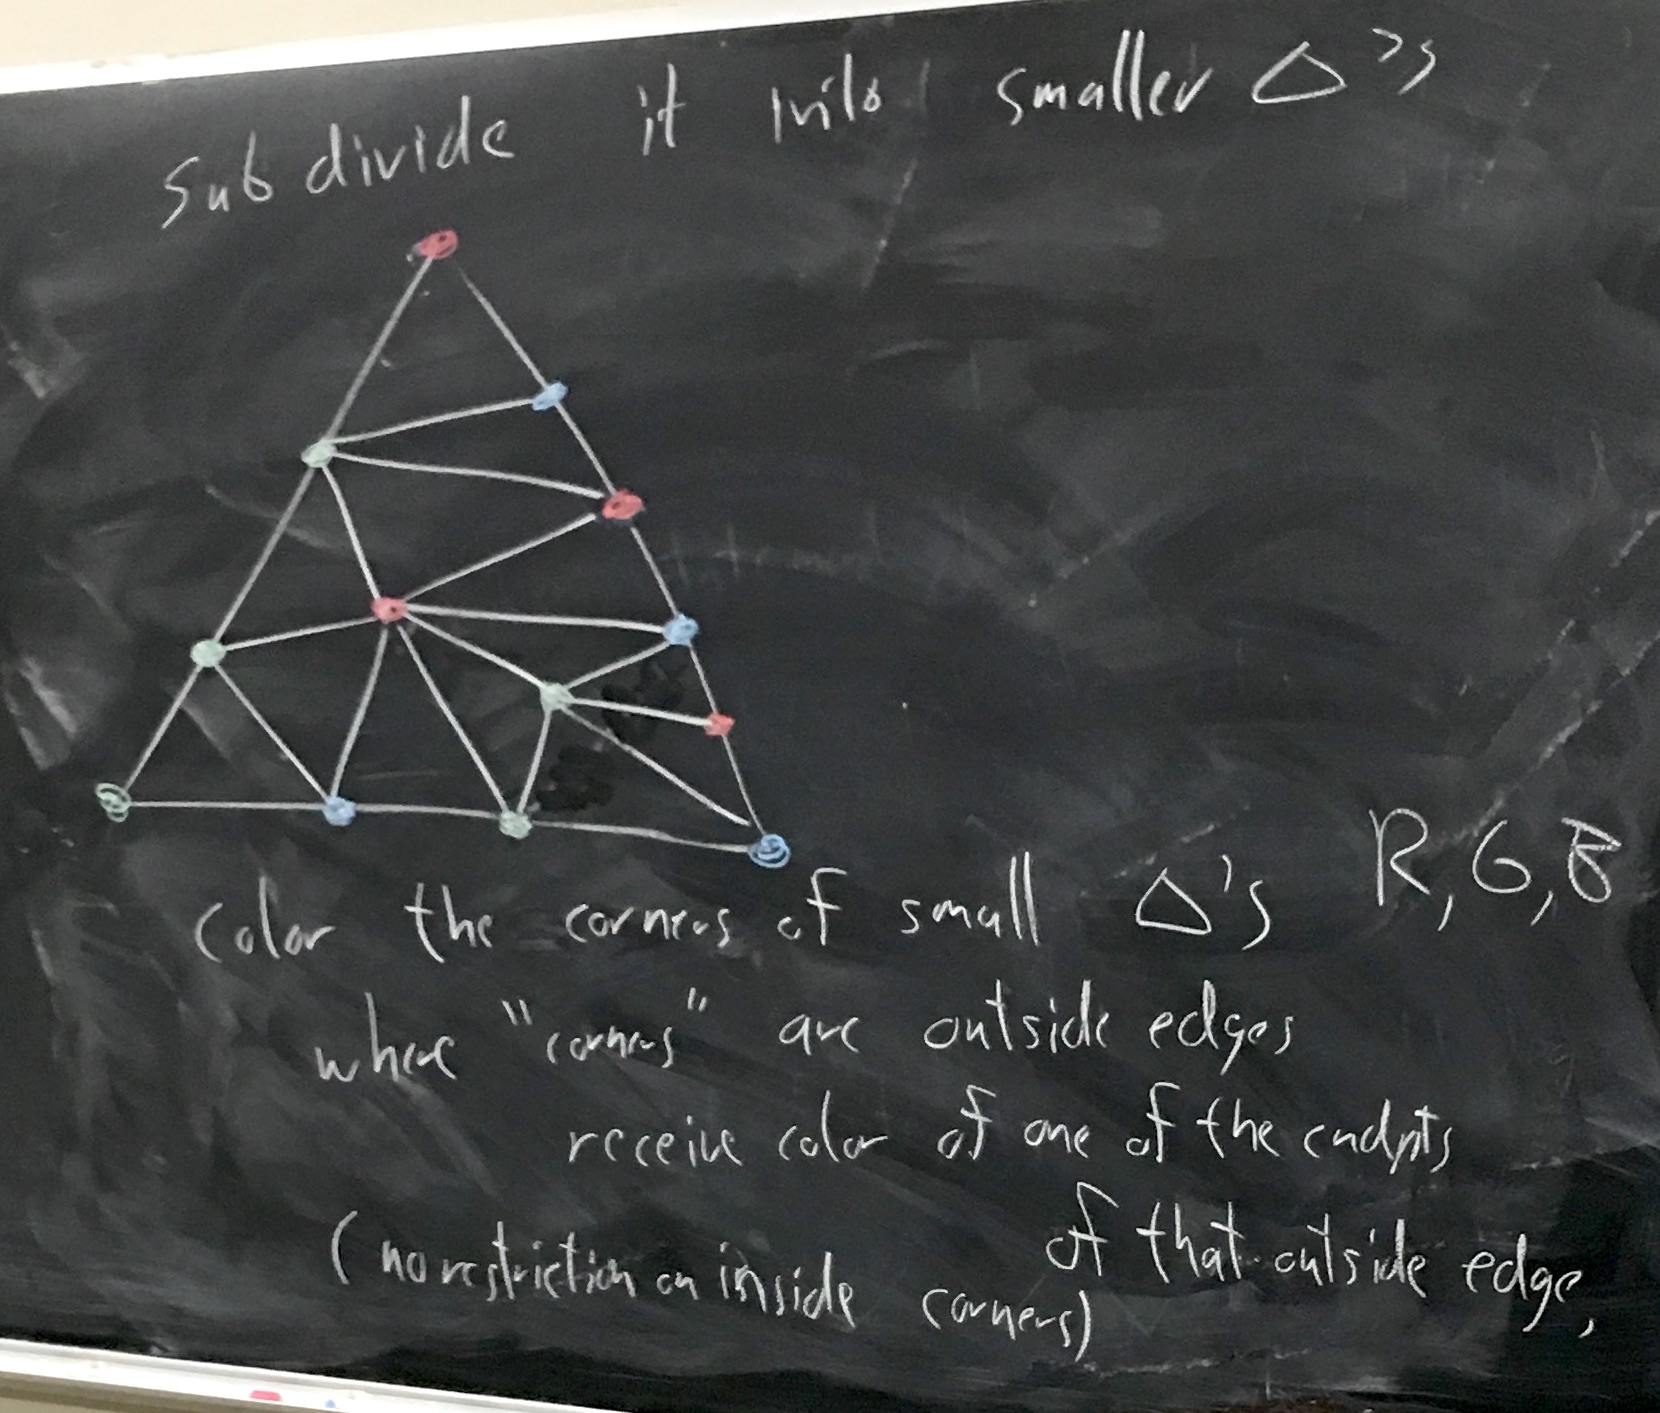 Subdivide it into smaller Δ's
R, G, B
Color the corners of small Δ's
where "corners" are outside edges
receive color of one of the endpts
of that outside edge,
(no restriction on inside corners)